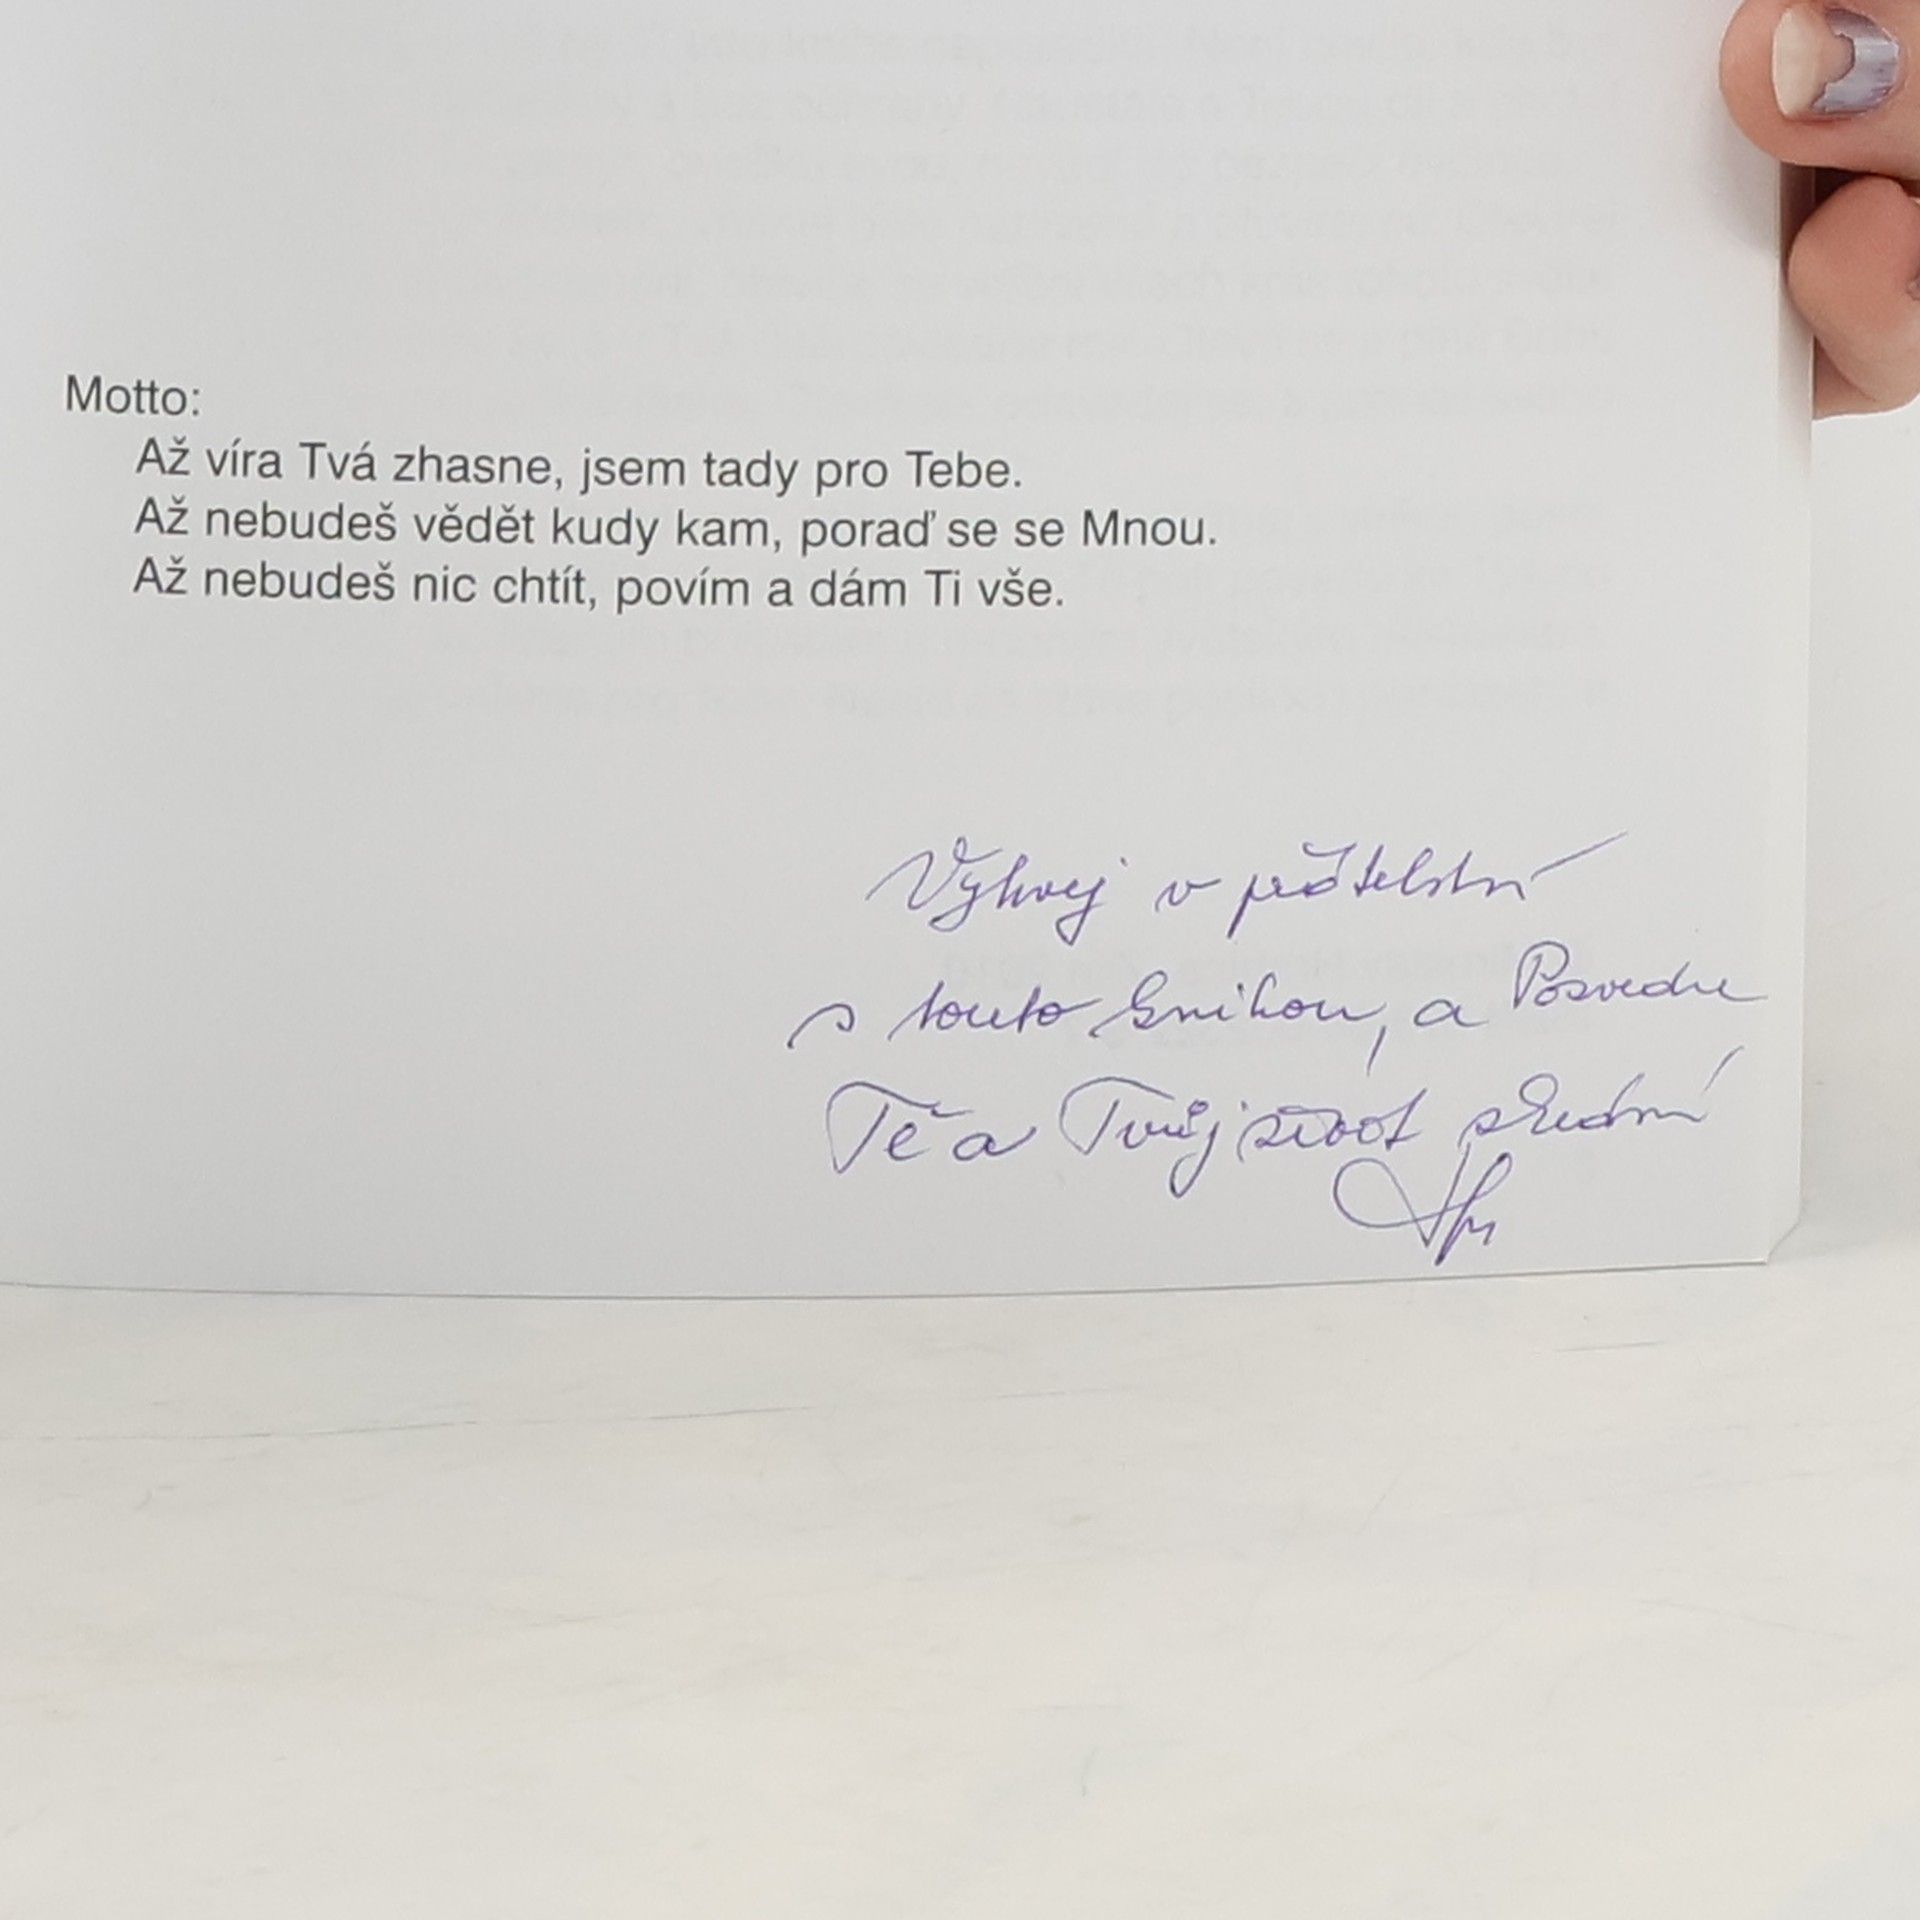 Motto:
Až víra Tvá zhasne, jsem tady pro Tebe.
Až nebudeš vědět kudy kam, poraď se se Mnou.
Až nebudeš nic chtít, povím a dám Ti vše.
v přátelství
s touto knihou, a
Tě a Tvůj život